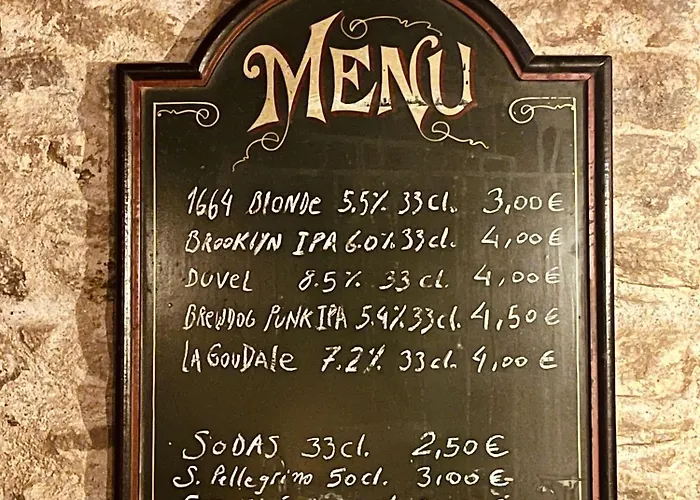 MENU
1664 BlONDe 5.5% 33cl. 3,00€
BROOKlYN IPA 6.0% 33cl. 4,00€
DUVEL 8.5% 33 cl. 4,00€
BREWDOG PUNK IPA 5.4% 33cl. 4,50€
LA GOUDAle 7.2% 33cl 4,00€
SODAS 33cl. 2,50€
S. Pellegrino 50cl. 3,00€